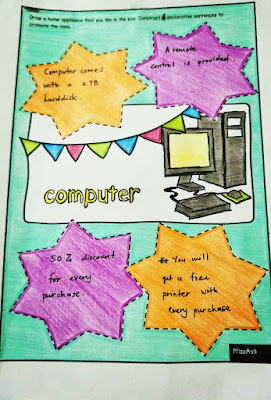 Draw a home appliance that you like in the box. Construct 4 declarative sentences to
promote the item.
Computer comes
with a 2 TB
harddisk.
A remote
control is provided.
computer
50% discount
for every
purchase.
You will
get a free
printer with
every purchase
MissAsh